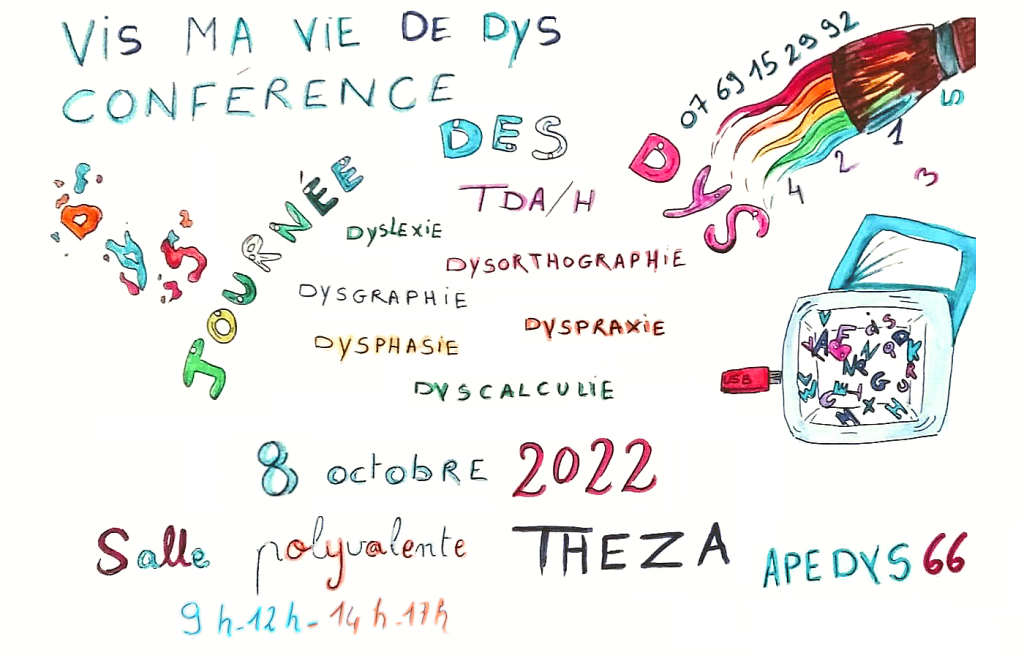 VIS MA VIE DE DYS
CONFÉRENCE
07 69 15 29 92
DYS
JOURNÉE
DES
DYS
TDA/H
DYSLEXIE
DYSORTHOGRAPHIE
DYSGRAPHIE
DYSPRAXIE
DYSPHASIE
DYSCALCULIE
1
2
3
4
5
USB
8 octobRE 2022
Salle polyvalente THEZA
APEDYS 66
9h-12h-14h-17h